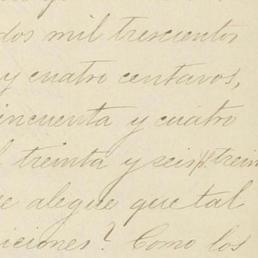 dos mil trescientos
y cuatro centavos,
incuenta y cuatro
l treinta y seis trein
e alegue que tal
iciones? Como los